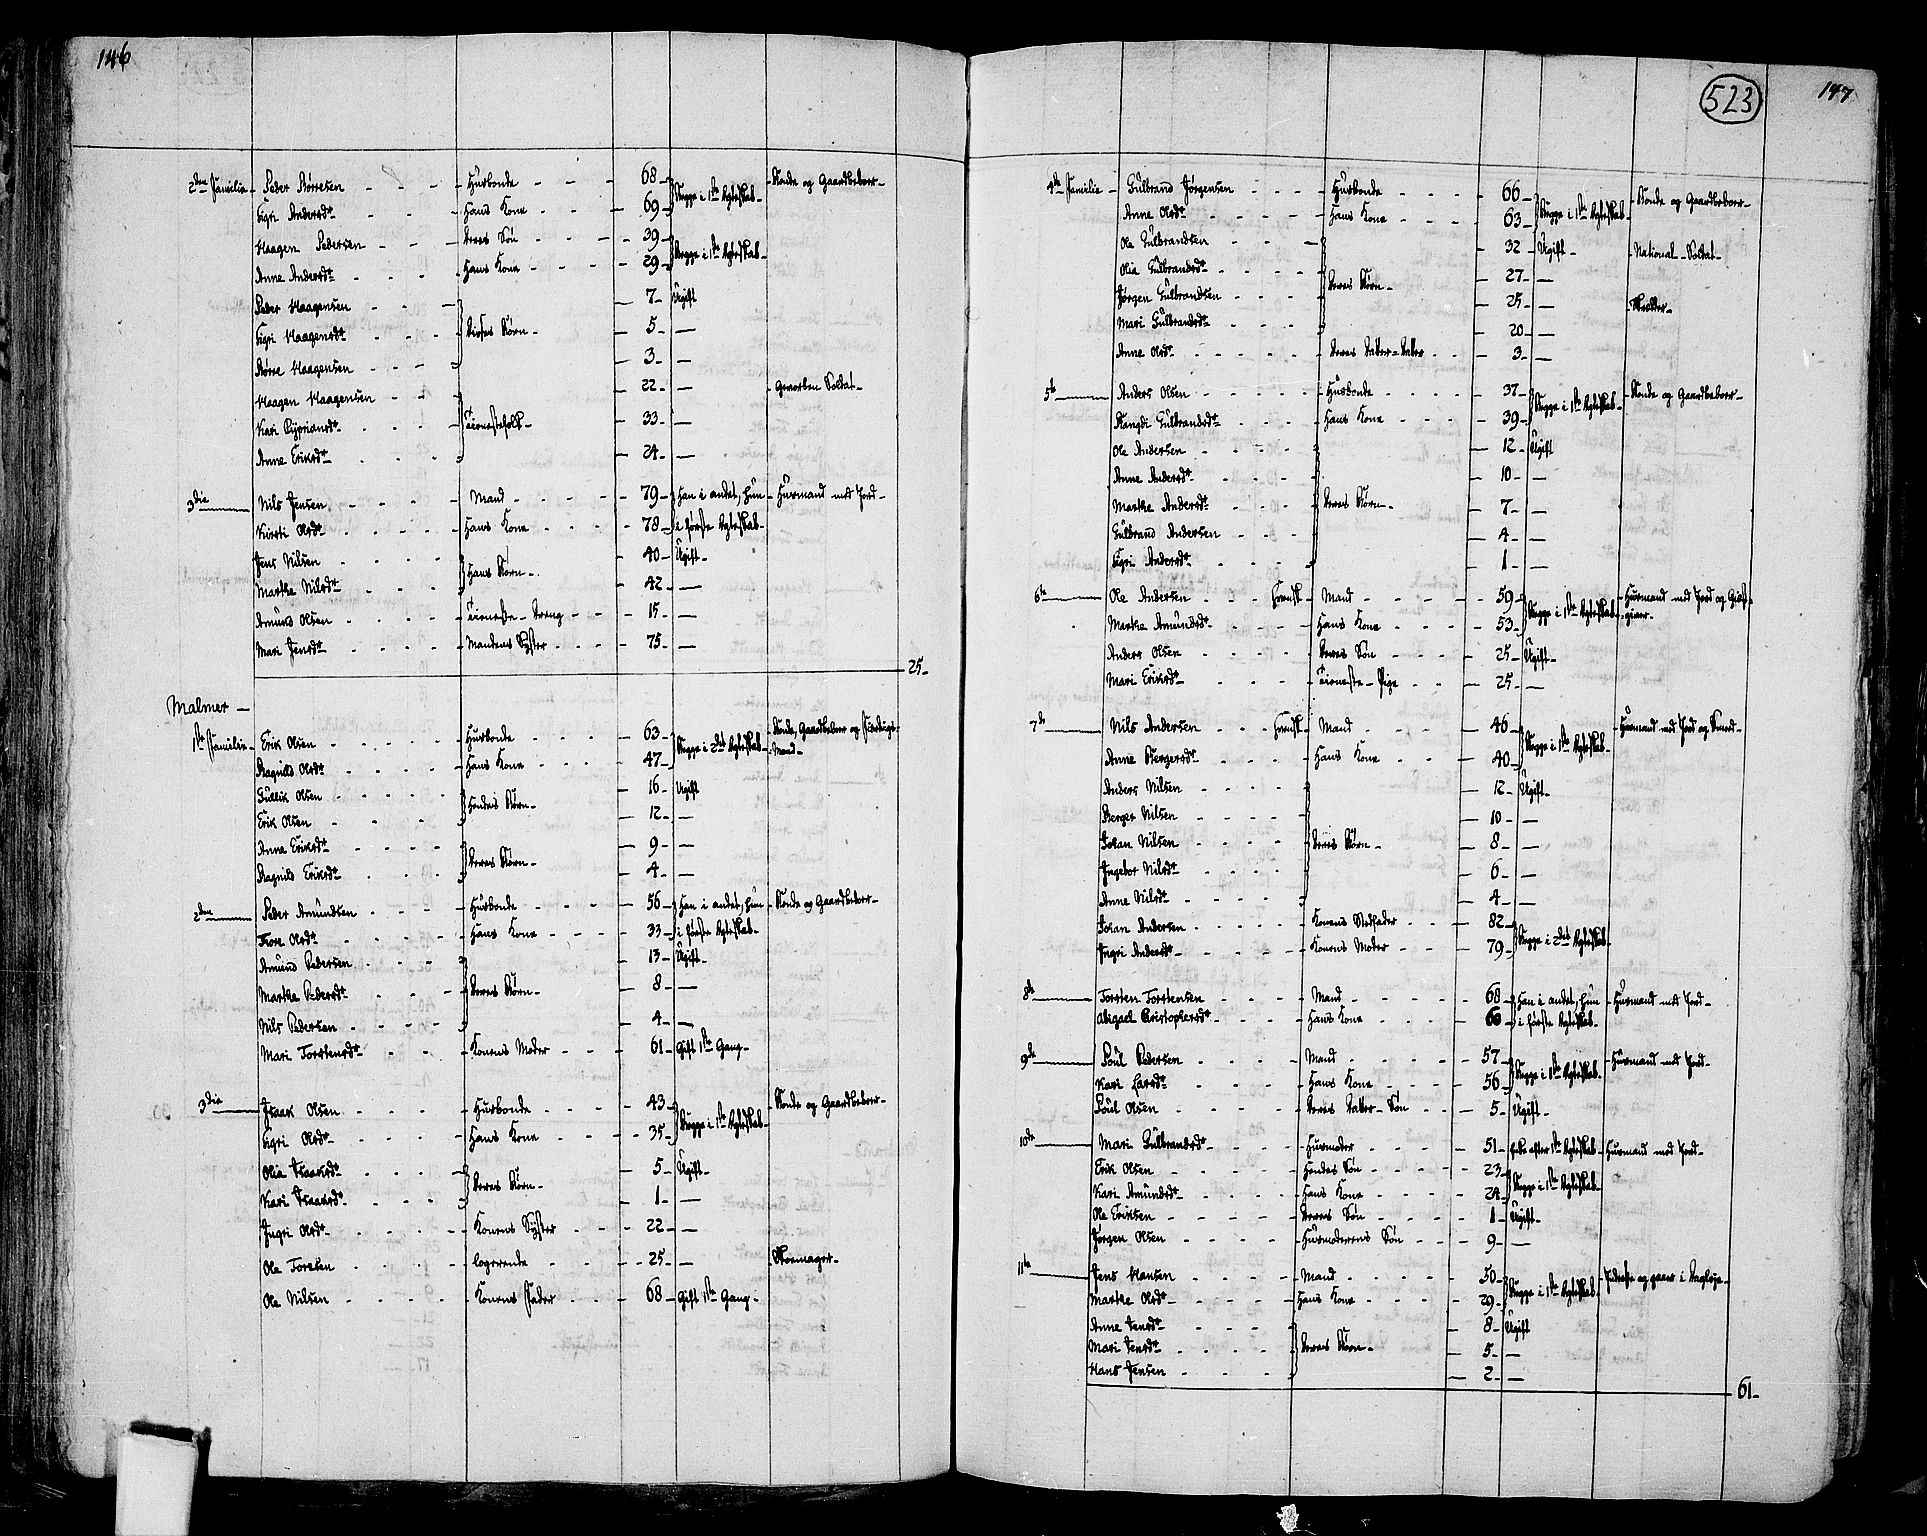 146
2den Familie - Peder Børresen - Husbonde - 68 - Begge i 1ste Ægteskab - Bonde og Gaardbeboer -
Sigri Andersdr - Hans Kone - 69 -
Haagen Pedersen - Deres Søn - 39 - Begge i 1ste Ægteskab -
Anne Andersdr - Hans Kone - 29 -
Peder Haagensen - Disses Børn - 7 - Ugift
Sigri Haagensdr - 5 -
Børre Haagensen - 3 -
Haagen Haagensen - Tienestefolk - 22 - Geworben Soldat -
Kari Cypriansdr - 33 -
Anne Eriksdr - 24 -
3die - Nils Jensen - Mand - 79 - Han i andet, hun - Huusmand med Jord -
Kirsti Olsdr - Hans Kone - 78 - i første Ægteskab -
Jens Nilsen - Hans Børn - 40 - Ugift -
Marthe Nilsdr - 42 -
Amund Olsen - Tieneste-Dreng - 15 -
Mari Jensdr - Mandens Syster - 75 -
25 -
Malmer -
1ste Familie - Erik Olsen - Husbonde - 63 - Begge i 2det Ægteskab - Bonde, Gaardbeboer og
Ragnild Olsdr - Hans Kone - 47 - Mand -
Gullik Olsen - Hendes Børn - 16 - Ugift
Erik Olsen - 12 -
Anne Eriksdr - Deres Børn - 9 -
Ragnild Eriksdr - 4 -
2den - Peder Amundsen - Husbonde - 56 - Han i andet, hun - Bonde og Gaardbeboer -
Tore Olsdr - Hans Kone - 33 - i første Ægteskab -
Amund Pedersen - Deres Børn - 13 - Ugift -
Marthe Pedersdr - 8 -
Nils Pedersen - 4 -
Mari Torstensdr - Konens Moder - 61 - Gift 1ste Gang -
3die - Isaak Olsen - Husbonde - 43 - Begge i 1ste Ægteskab - Bonde og Gaardbeboer -
Sigri Olsdr - Hans Kone - 35 -
Olia Isaaksdr - Deres Børn - 5 - Ugift -
Kari Isaaksdr - 1 -
Ingri Olsdr - Konens Syster - 22 -
Ole Torsten - logerende - 25 - Skomager -
Ole Nilsen - Konens Fader - 68 - Gift 1ste Gang -
523
147
4de Familie - Gulbrand Jørgensen - Husbonde - 66 - Begge i 1ste Ægteskab - Bonde og Gaardbeboer -
Anne Olsdr - Hans Kone - 63 -
Ole Gulbrandsen - Deres Børn - 32 - Ugift - National-Soldat -
Olia Gulbrandsdr - 27 -
Jørgen Gulbrandsen - 25 - Skræder -
Mari Gulbrandsdr - 20 -
Anne Olsdr - Deres Datter-Datter - 3 -
5te - Anders Olsen - Husbonde - 37 - Begge i 1ste Ægteskab - Bonde og Gaardbeboer -
Rangdi Gulbrandsdr - Hans Kone - 39 -
Ole Andersen - Deres Børn - 12 - Ugift
Anne Andersdr - 10 -
Marthe Andersdr - 7 -
Gulbrand Andersen - 4 -
Sigri Andersdr - 1 -
6te - Ole Andersen - Mand - 59 - Begge i 1ste Ægteskab - Huusmand med Jord og
Marthe Amundsdr - Hans Kone - 53 -
Anders Olsen - Deres Søn - 25 - Ugift -
Mari Eriksdr - Tieneste-Pige - 25 -
7de - Nils Andersen - Mand - 46 - Begge i 1ste Ægteskab - Huusmand med Jord og Smed -
Anne Bergersdr - Hans Kone - 40 -
Anders Nilsen - Deres Børn - 12 - Ugift -
Berger Nilsen - 10 -
Johan Nilsen - 8 -
Ingebor Nilsdr - 6 -
Anne Nilsdr - 4 -
Johan Andersen - Konens Stedfader - 82 - Begge i 2det Ægteskab -
Ingri Andersdr - Konens Moder - 79 -
8de - Torsten Torstensen - Mand - 68 - Han i andet, hun - Huusmand med Jord -
Abigael Christophersdr - Hans Kone - 60 - i første Ægteskab -
9de - Poul Pedersen - Mand - 57 - Begge i 1ste Ægteskab - Huusmand med Jord -
Kari Larsdr - Hans Kone - 56 -
Poul Olsen - Deres Datter-Søn - 5 - Ugift -
10de - Mari Gulbrandsdr - Husmoder - 51 - Enke efter 1ste Ægteskab - Huusmand med Jord -
Erik Olsen - Hendes Søn - 23 - Begge i 1ste Ægteskab -
Kari Amundsdr - Hans Kone - 24 -
Ole Eriksen - Deres Søn - 1 - Ugift -
Jørgen Olsen - Husmoderens Søn - 9 -
11te - Jens Hansen - Mand - 30 - Begge i 1ste Ægteskab - Inderste og gaaer i Dagleje -
Marthe Olsdr - Hans Kone - 29 -
Anne Jensdr - Deres Børn - 8 - Ugift
Mari Jensdr - 5 -
Hans Jensen - 2 -
61 -